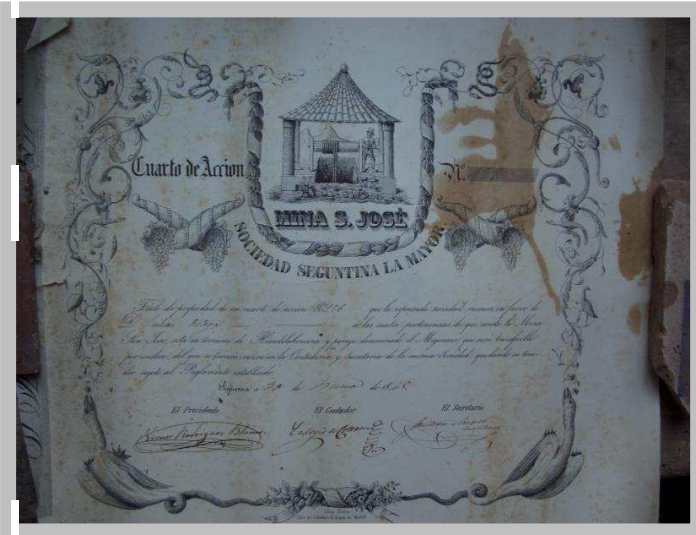 Cuarto de Accion
N.
MINA S. JOSÉ
SOCIEDAD SEGUNTINA LA MAYOR
Título de propiedad de un cuarto de accion Nº 176 que la espresada sociedad reconoce en favor de
D. Julian à las cuatro pertenencias de que consta la Mina
San José, sita en termino de Hiendelaencina y parage denominado el Mojonar, que será trasferible
por endoso, del que se tomará razon en la Contaduria y Secretaria de la misma Sociedad, quedando su tene-
dor sugeto al Reglamento establecido.
Sigüenza de de
El Presidente El Contador El Secretario
Vicente Rodriguez